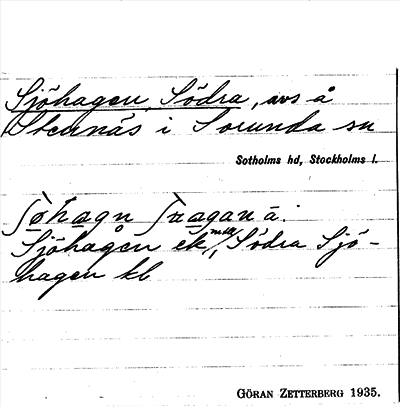 Sjöhagen, Södra, avs å
Stennäs i Sorunda sn
Sotholms hd, Stockholms l.
Sjöhagen ek, Södra Sjö-
hagen kl
GÖRAN ZETTERBERG 1935.